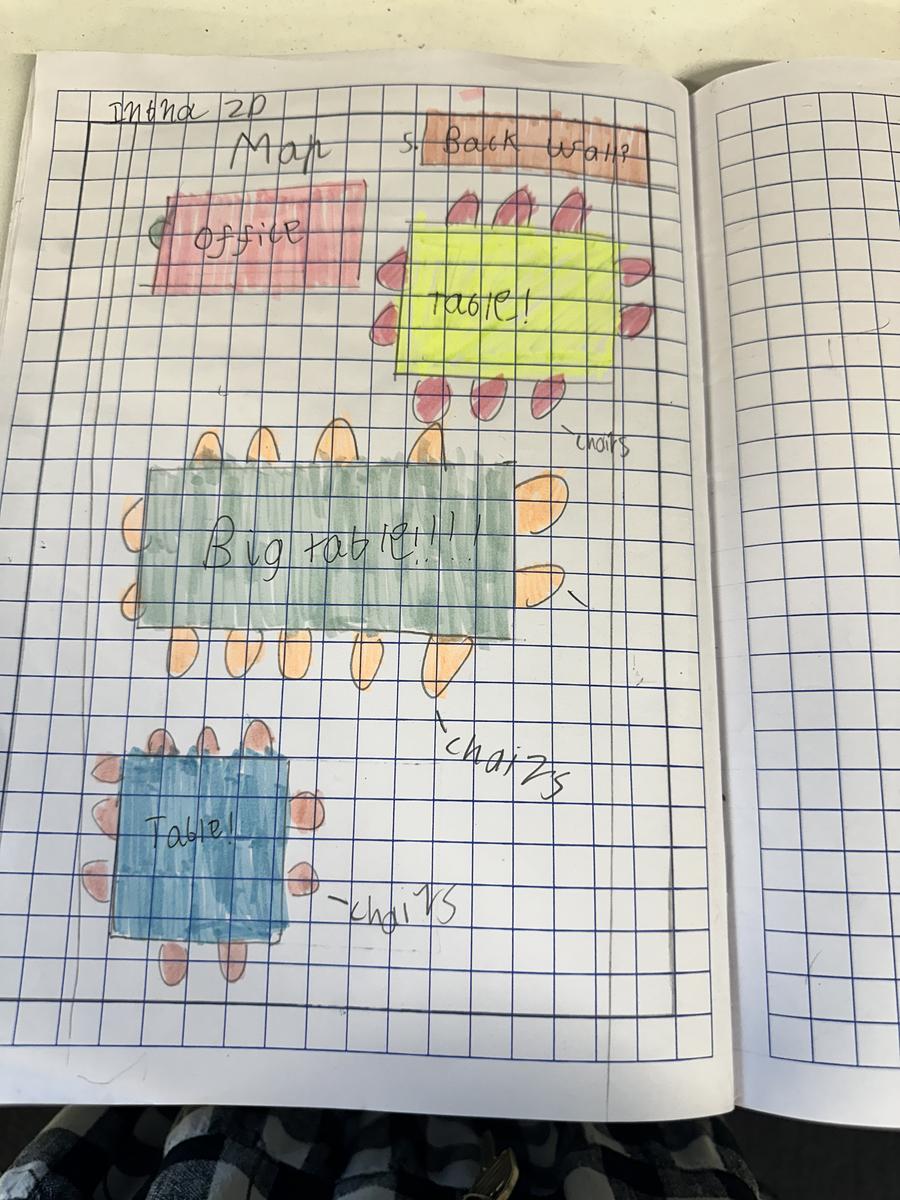 Intha 2D
Map
S. Back Wall?
Office
Table!
chairs
Big table!!!!
chairs
Table!
chairs